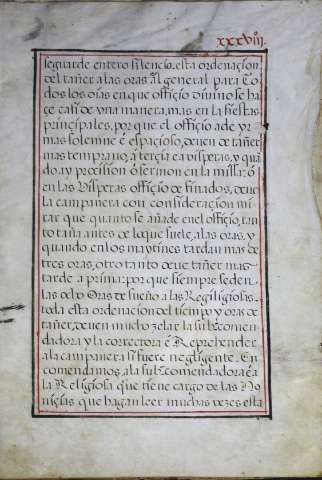 xxxviij.
seguarde entero silencio. esta ordenacion
del tañer a las oras Al general para To
dos los dias en que officio divino se ha
ze casi de vna manera, mas en la fiestas
principales, por que el officio a de yr
mas solemne è espacioso, deven de tañer
mas temprano, a tercia e a visperas, y qua
do, ay procision ò sermon en la missa: ò
en las Visperas officio de finados, deve
la campanera con consideracion mi
rar que quanto se añade en el officio, tan
to taña antes de lo que suele, a las oras, y
quando en los maytines tardan mas de
tres oras, otro tanto deve tañer mas
tarde a prima: por que siempre se den
las ocho Oras de sueño a las Religiosas.
toda esta ordenacion del tiempo y oras de
tañer, deven mucho zelar la subcomen
dadora y la correctora è Reprehender
a la campanera si fuere negligente. En
comendamos, a la subcomendadora è a
la Religiosa que tiene cargo de las No
vicias que hagan leer muchas vezes esta